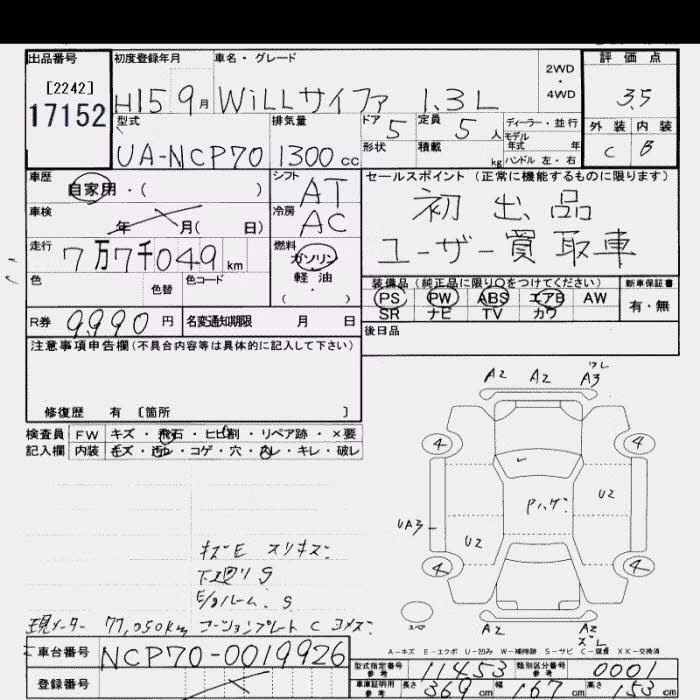 出品番号
[2242]
17152
初度登録年月
H15 9月
車名・グレード
WiLLサイファ 1.3L
2WD
・
4WD
評価点
3.5
外装 内装
C B
型式
UA-NCP70
排気量
1300cc
ドア 5
定員 5人
形状
積載 kg
ディーラー・並行
モデル
年式 年
ハンドル 左・右
車歴
自家用・( )
車検
年 月( 日)
走行
7万7千049km
色
色替
色コード
シフト
AT
冷房
AC
燃料
ガソリン
軽油
( ・ )
セールスポイント(正常に機能するものに限ります)
初出品
ユーザー買取車
装備品(純正品に限り○をつけてください)
PS PW ABS エアB AW
SR ナビ TV カワ
新車保証書
有・無
後日品
R券 9,990円
名変通知期限 月 日
注意事項申告欄(不具合内容等は具体的に記入して下さい)
修復歴 有 [箇所 ]
検査員 FW キズ・飛石・ヒビ割・リペア跡・×要
記入欄 内装 キズ・汚レ・コゲ・穴・スレ・キレ・破レ
ワレ
A2 A2 A3
4 4
U2
UA3
U2
4 4
スペア
A2 A2
キズE スリキズ
下廻りS
E/gルーム.S
現メーター 77,050km コーションプレート C ヨメズ
A-キズ E-エクボ U-凹み W-補修跡 S-サビ C-腐食 XX-交換済
車台番号
NCP70-0019926
登録番号
型式指定番号
参考
11453
類別区分番号
参考
0001
車庫証明用
参考
長さ 369cm 幅 167cm 高さ 153cm